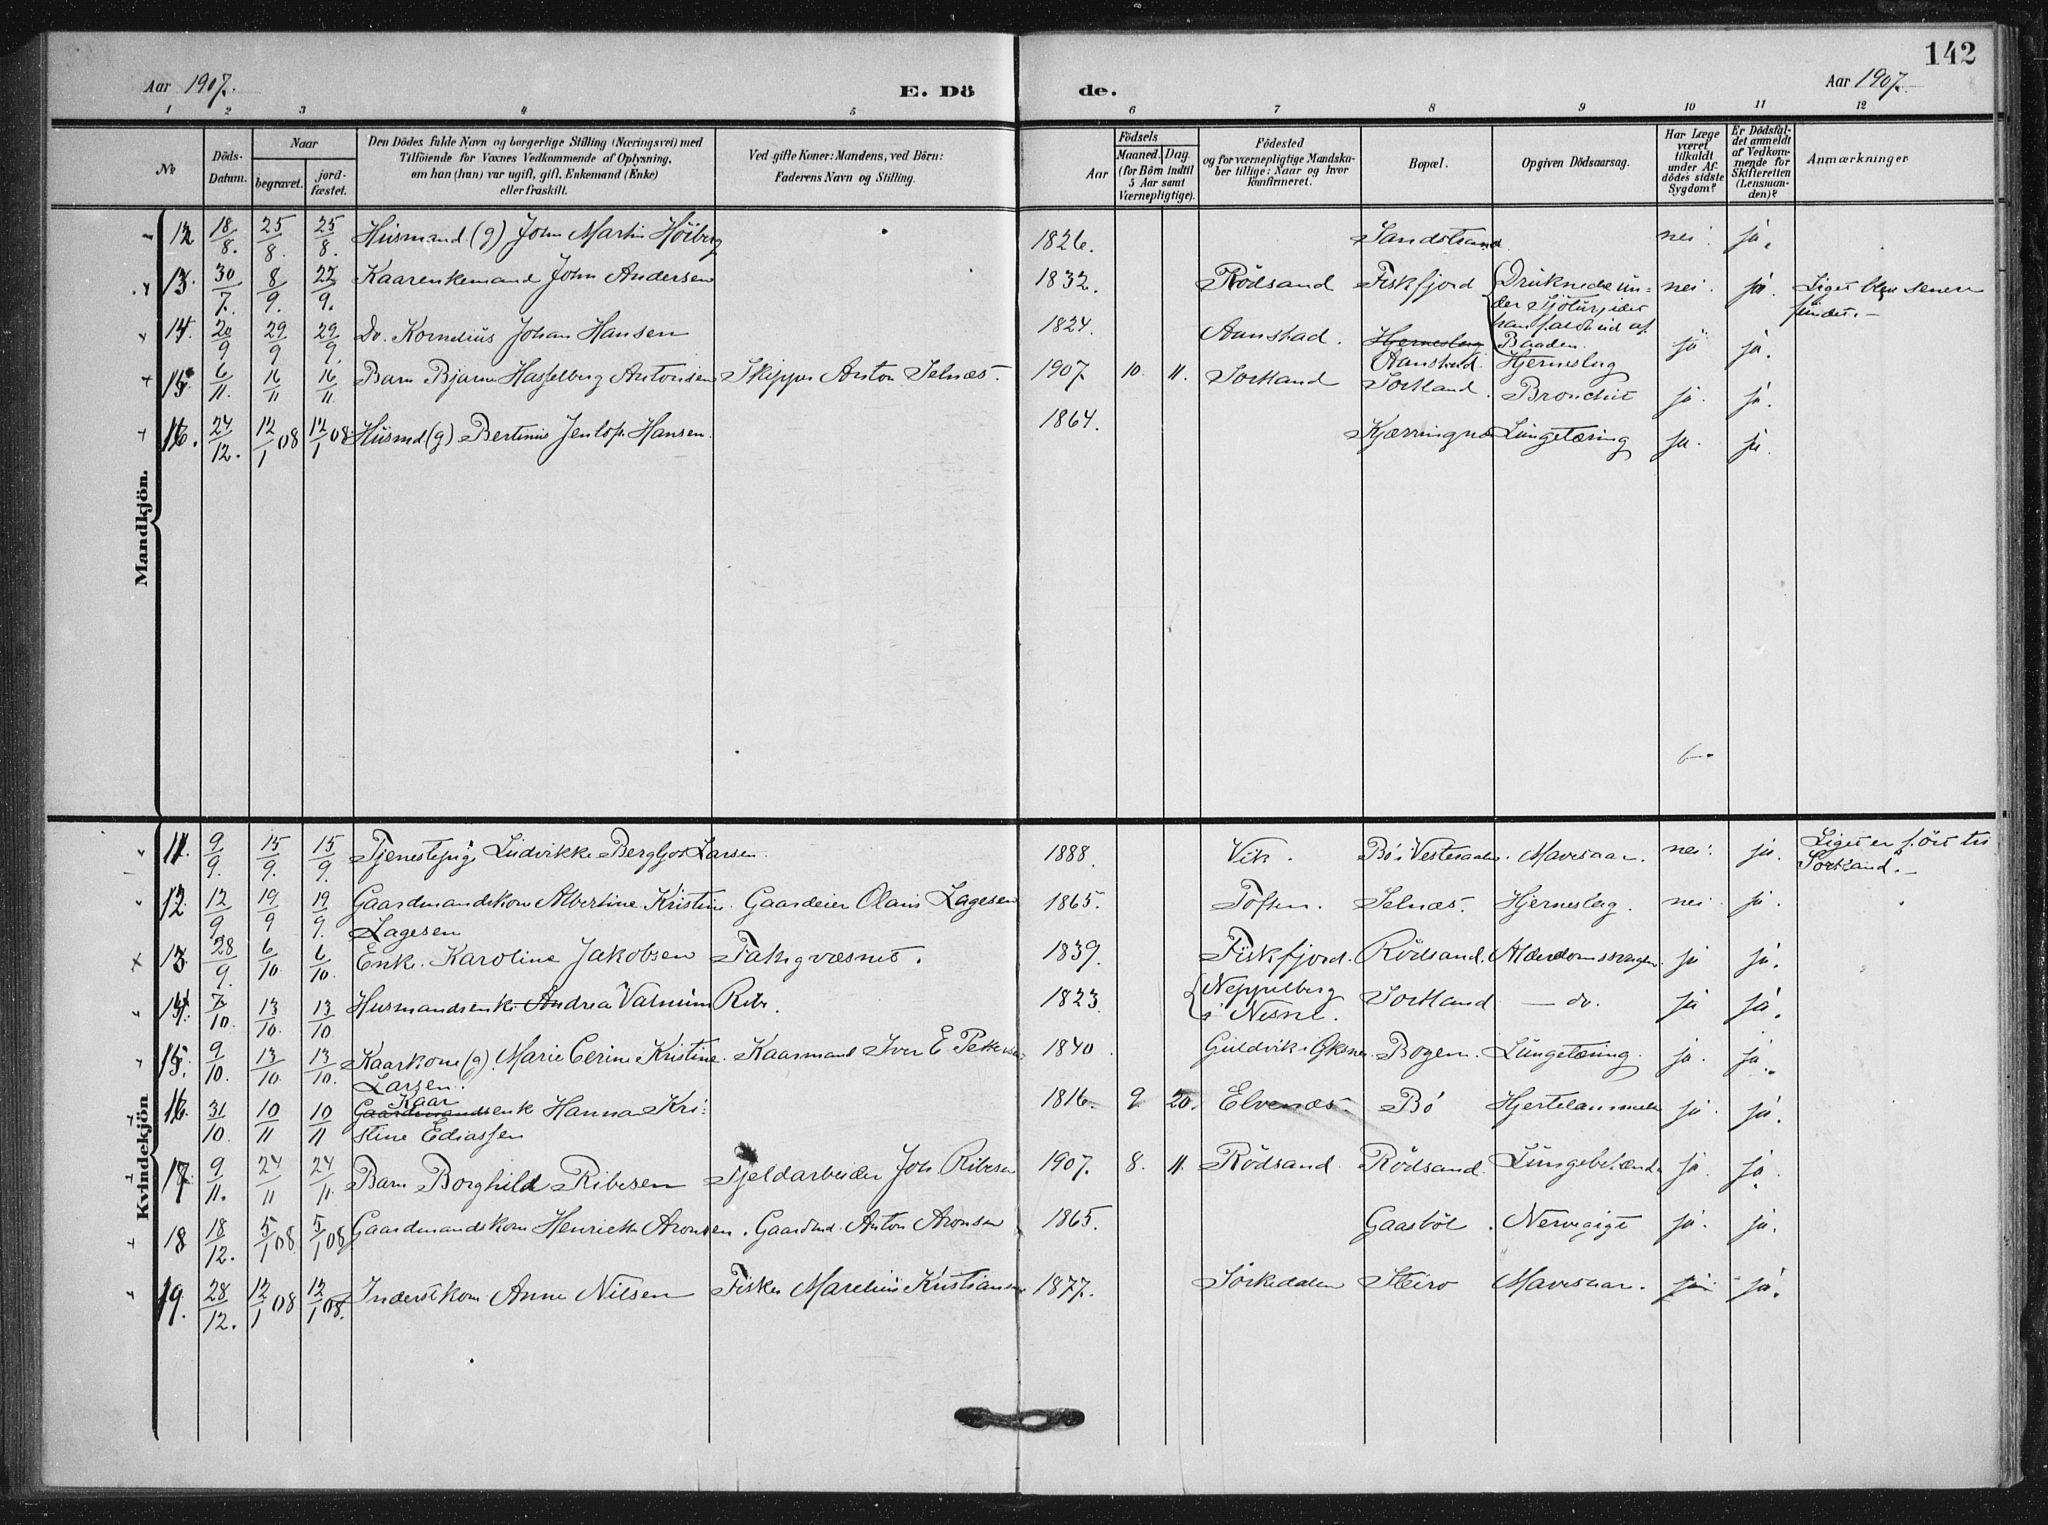 142
Aar 1907. E. Dö de. Aar 1907.
1 2 3 4 5 6 7 8 9 10 11 12
No
Döds-Datum.
Naar
begravet.
jord-fæstet.
Den Dödes fulde Navn og borgerlige Stilling (Næringsvei) med
Tilföiende for Voxnes Vedkommende af Oplysning,
om han (hun) var ugift, gift, Enkemand (Enke)
eller fraskilt.
Ved gifte Koner: Mandens, ved Börn:
Faderens Navn og Stilling.
Födsels
Aar
Maaned. Dag.
(for Börn indtil
5 Aar samt
Værnepligtige).
Födested
og for værnepligtige Mandska-
ber tillige: Naar og hvor
konfirmeret.
Bopæl.
Opgiven Dödsaarsag.
Har Læge
været
tilkaldt
under Af-
dödes sidste
Sygdom?
Er Dödsfal-
det anmeldt
af Vedkom-
mende for
Skifteretten
(Lensman-
den)?
Anmærkninger
Mandkjön.
12 18/8. 25/8. 25/8. Husmand (g) John Martin Höiberg 1826. Sandstrand. nei. ja.
13. 30/7. 8/9. 22/9. Kaarenkemand John Andersen 1832. Rödsand Fiskfjord Druknede un-
der Sjötur, idet
han faldt ud af
Baaden. nei. ja. Liget blev senere
fundet.
14. 20/9 29/9 29/9. Do. Kornelius Johan Hansen 1824. Aanstad. Hjerneslag
Aanstad. Hjerneslag ja ja.
15. 6/11. 16/11 16/11 Barn Bjarne Hasselberg Antonsen Skipper Anton Selnæs. 1907. 10. 11. Sortland Sortland. Bronchit ja. ja.
16. 24/12. 12/1 08 12/1 08. Husmd (g) Bertinus Jentof. Hansen. 1864. Kjærringnæs Lungetæring ja. ja.
Kvindekjön
11. 9/9. 15/9. 15/9. Tjenestepige Ludvikke Bergljot Larsen. 1888. Vik. Bö i Vesteraalen. Mavesaar. nei. ja. Liget er fört til
Sortland.
12. 12/9 19/9 19/9. Gaardmandskone Albertine Kristine Gaardeier Olaus Lagesen 1865. Toften. Selnæs. Hjerneslag. nei. ja.
Lagesen
13. 28/9. 6/10. 6/10. Enke Karoline Jakobsen Fattigvæsnet. 1839. Fiskfjord. Rödsand. Alderdomssvaghed ja ja.
14. 7/10. 13/10. 13/10 Husmandsenke Andrea Valnum Ribe. 1823. Neppelberg
i Nesne. Sortland — do. ja ja.
15. 9/10. 13/10. 13/10. Kaarkone (g). Marie Cerine Kristine Kaarmand Iver E. Pettersen 1840. Guldvik i Öksnes Bogen. Lungetæring. ja. ja.
Larsen.
16. 31/10. 10/11 10/11 Gaardmandsenk Kaar Hanna Kri-
stine Ediassen 1816. 9 20. Elvenæs. Bö Hjertelammelse ja. ja.
17 9/11. 24/11 24/11. Barn Borghild Ribesen Fjeldarbeider Joh. Ribesen 1907. 8. 11. Rödsand. Rödsand. Lungebetænd. ja. ja.
18 18/12. 5/1 08. 5/1 08. Gaardmandskone Henriette Aronsen. Gaardmd. Anton Aronsen 1865. Gaasböl. Nervegigt ja. ja.
19. 28/12. 12/1 08 12/1 08. Inderstkone Anne Nilsen Fisker Marelius Kristiansen 1877. Sörkedalen Steiro Mavesaar. ja. ja.